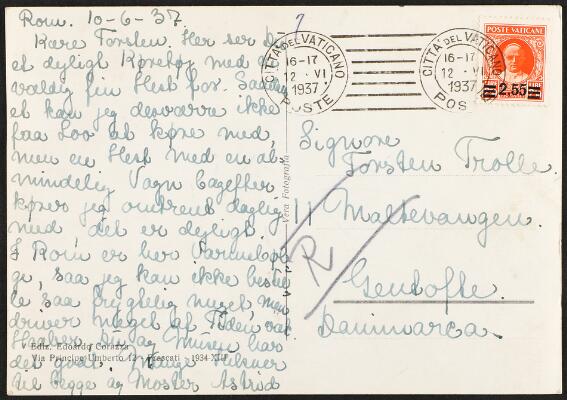 Rom. 10-6-37.
Kære Torsten. Her ser Du
et dejligt Køretøj med en
vældig fin Hest for. Saadan
et kan jeg desværre ikke
faa Lov at køre med,
men en Hest med en al-
mindelig Vogn bagefter
kører jeg omtrent daglig
med, det er dejligt.
I Rom er her Varmebøl-
ge, saa jeg kan ikke bestil-
le saa frygtelig meget, men
driver meget af Tiden væk
Haaber Du og Musen har
det godt. Mange Hilsner
til begge og Moster Astrid
Ediz. Edoardo Corazza
Via Principe Umberto 12 - Frascati - 1934-XIII
Vera Fotografia
CITTÀ DEL VATICANO
16-17
12 · VI
1937
POSTE
CITTÀ DEL VATICANO
16-17
12 · VI
1937
POSTE
POSTE VATICANE
2,55
Signore
Torsten Trolle.
11 Maltevangen.
Gentofte.
Danimarca
R